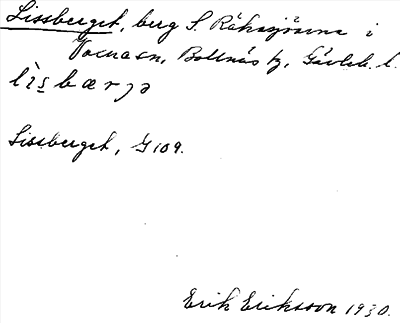 Lissberget, berg S. Råksjöarna i
Voxnasn, Bollnäs tg, Gävleb. l.
lìsbærjə
Lissberget, G 109.
Erik Eriksson 1930.